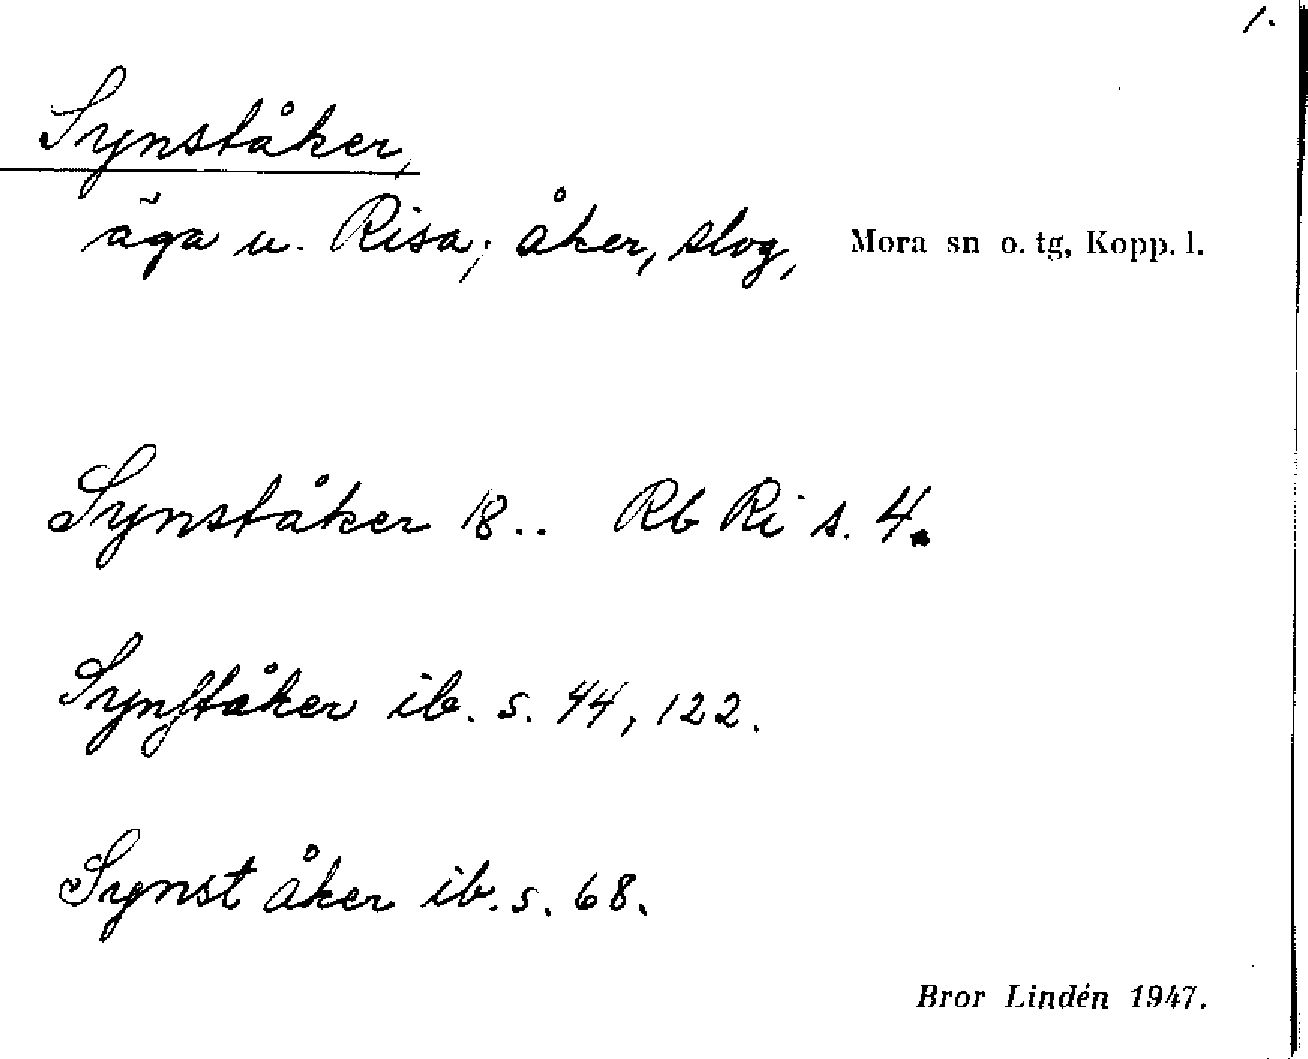 1.
Synståker,
äga u. Risa; åker, slog, Mora sn o. tg, Kopp. l.
Synståker 18.. Rb Ri s. 4.
Synſtåker ib. s. 44, 122.
Synst åker ib. s. 68.
Bror Lindén 1947.